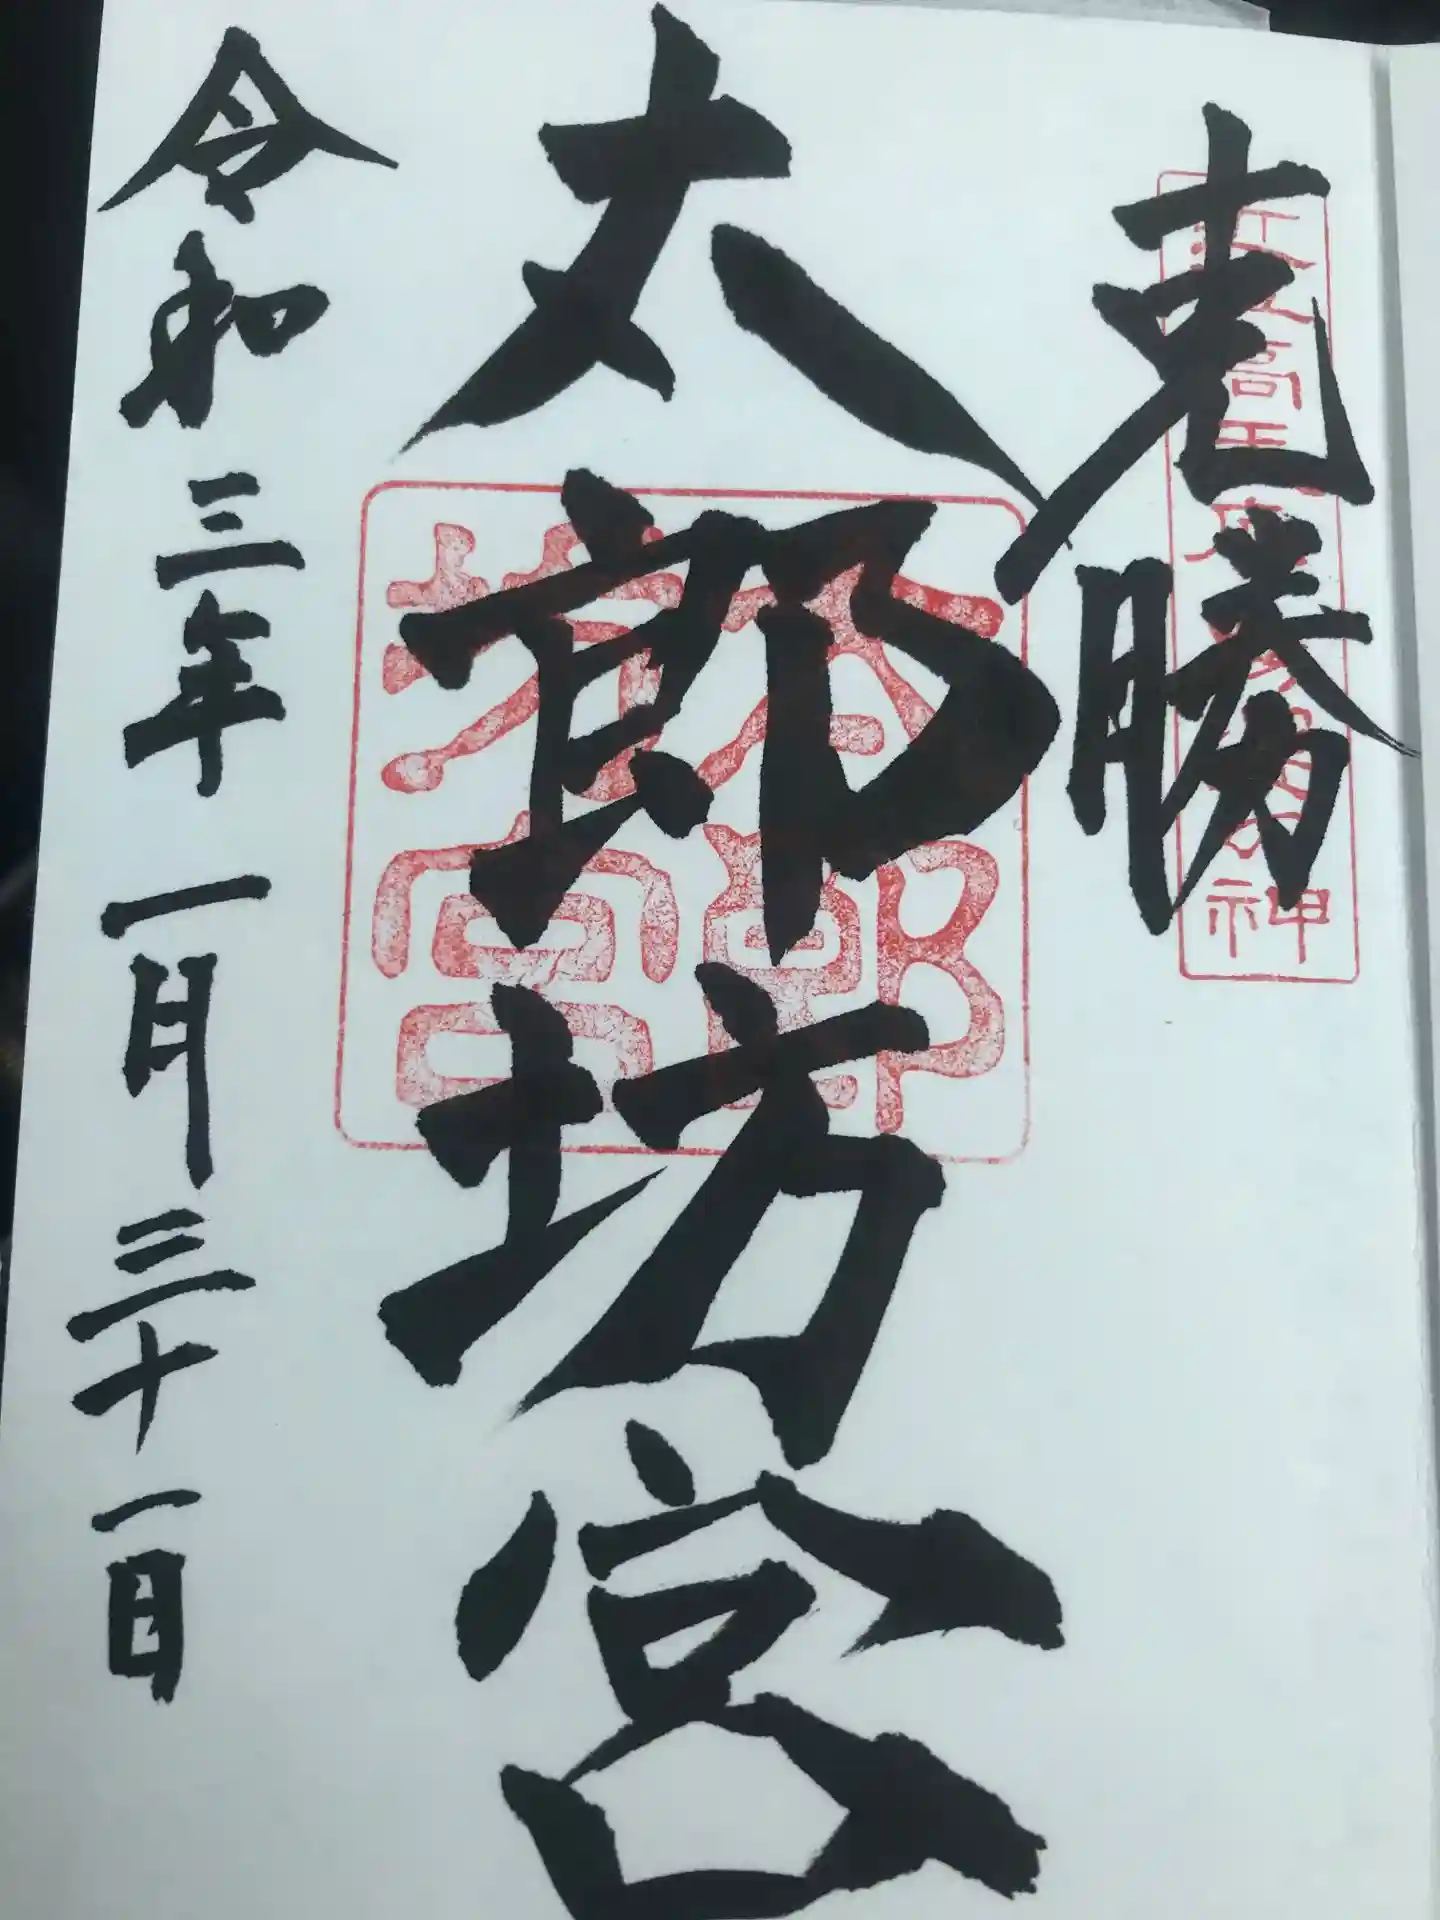 克勝
太郎坊宮
令和三年一月三十一日
太郎
坊宮